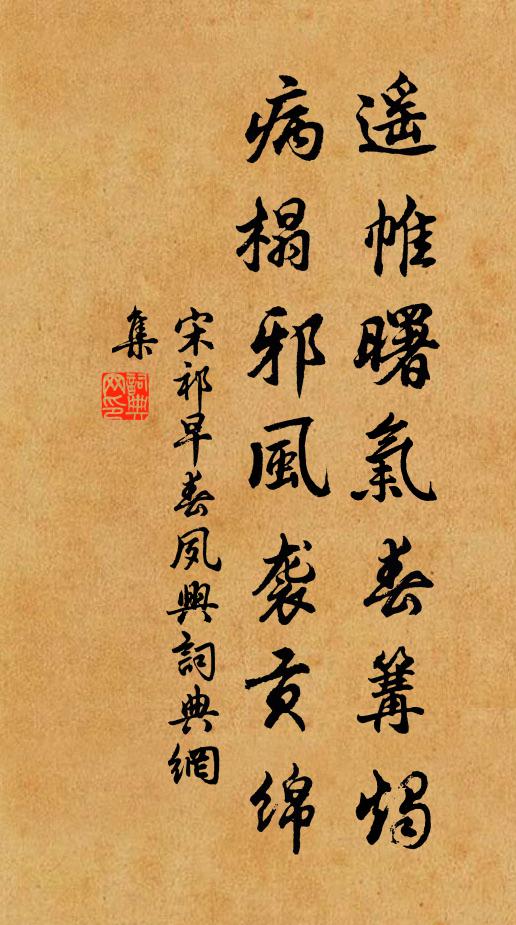 遥帷曙氣春篝燭
病榻邪風袭贡绵
宋祁早春夙興詞典網
集
詞典网印